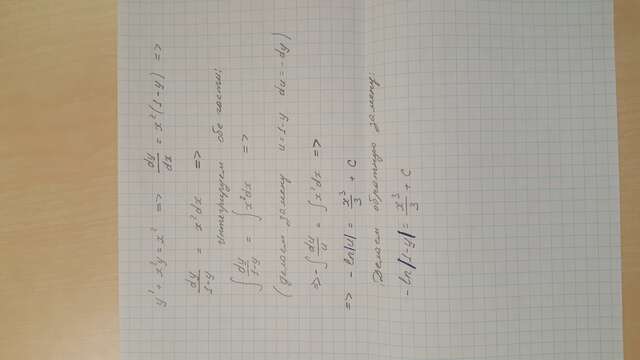 y' + x²y = x² => dy/dx = x²(1-y) =>
dy/1-y = x²dx =>
интегрируем обе части:
∫ dy/1-y = ∫ x²dx =>
(делаем замену u=1-y du=-dy)
=> -∫ du/u = ∫ x²dx =>
=> -ln|u| = x³/3 + C
Делаем обратную замену:
-ln|1-y| = x³/3 + C